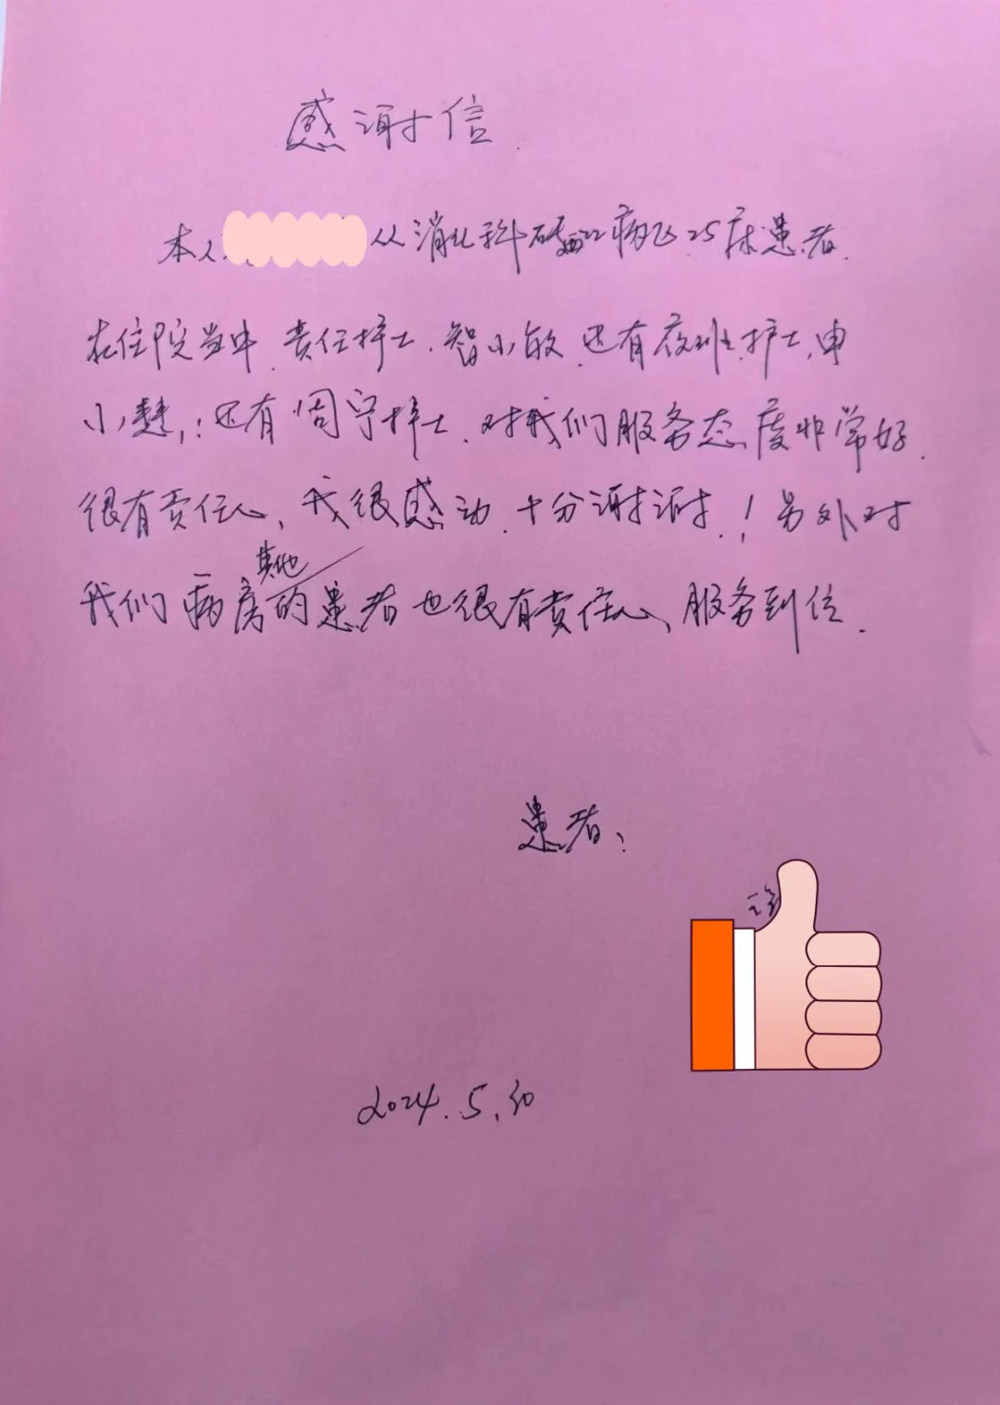 感谢信
本人 从消化科 22病区25床患者.
在住院当中.责任护士.智小敏.还有夜班护士.申
小楚,:还有周宁护士.对我们服务态度非常好.
很有责任心,我很感动.十分谢谢.!另外对
我们病房其他的患者也很有责任心、服务到位.
患者:
2024.5.30